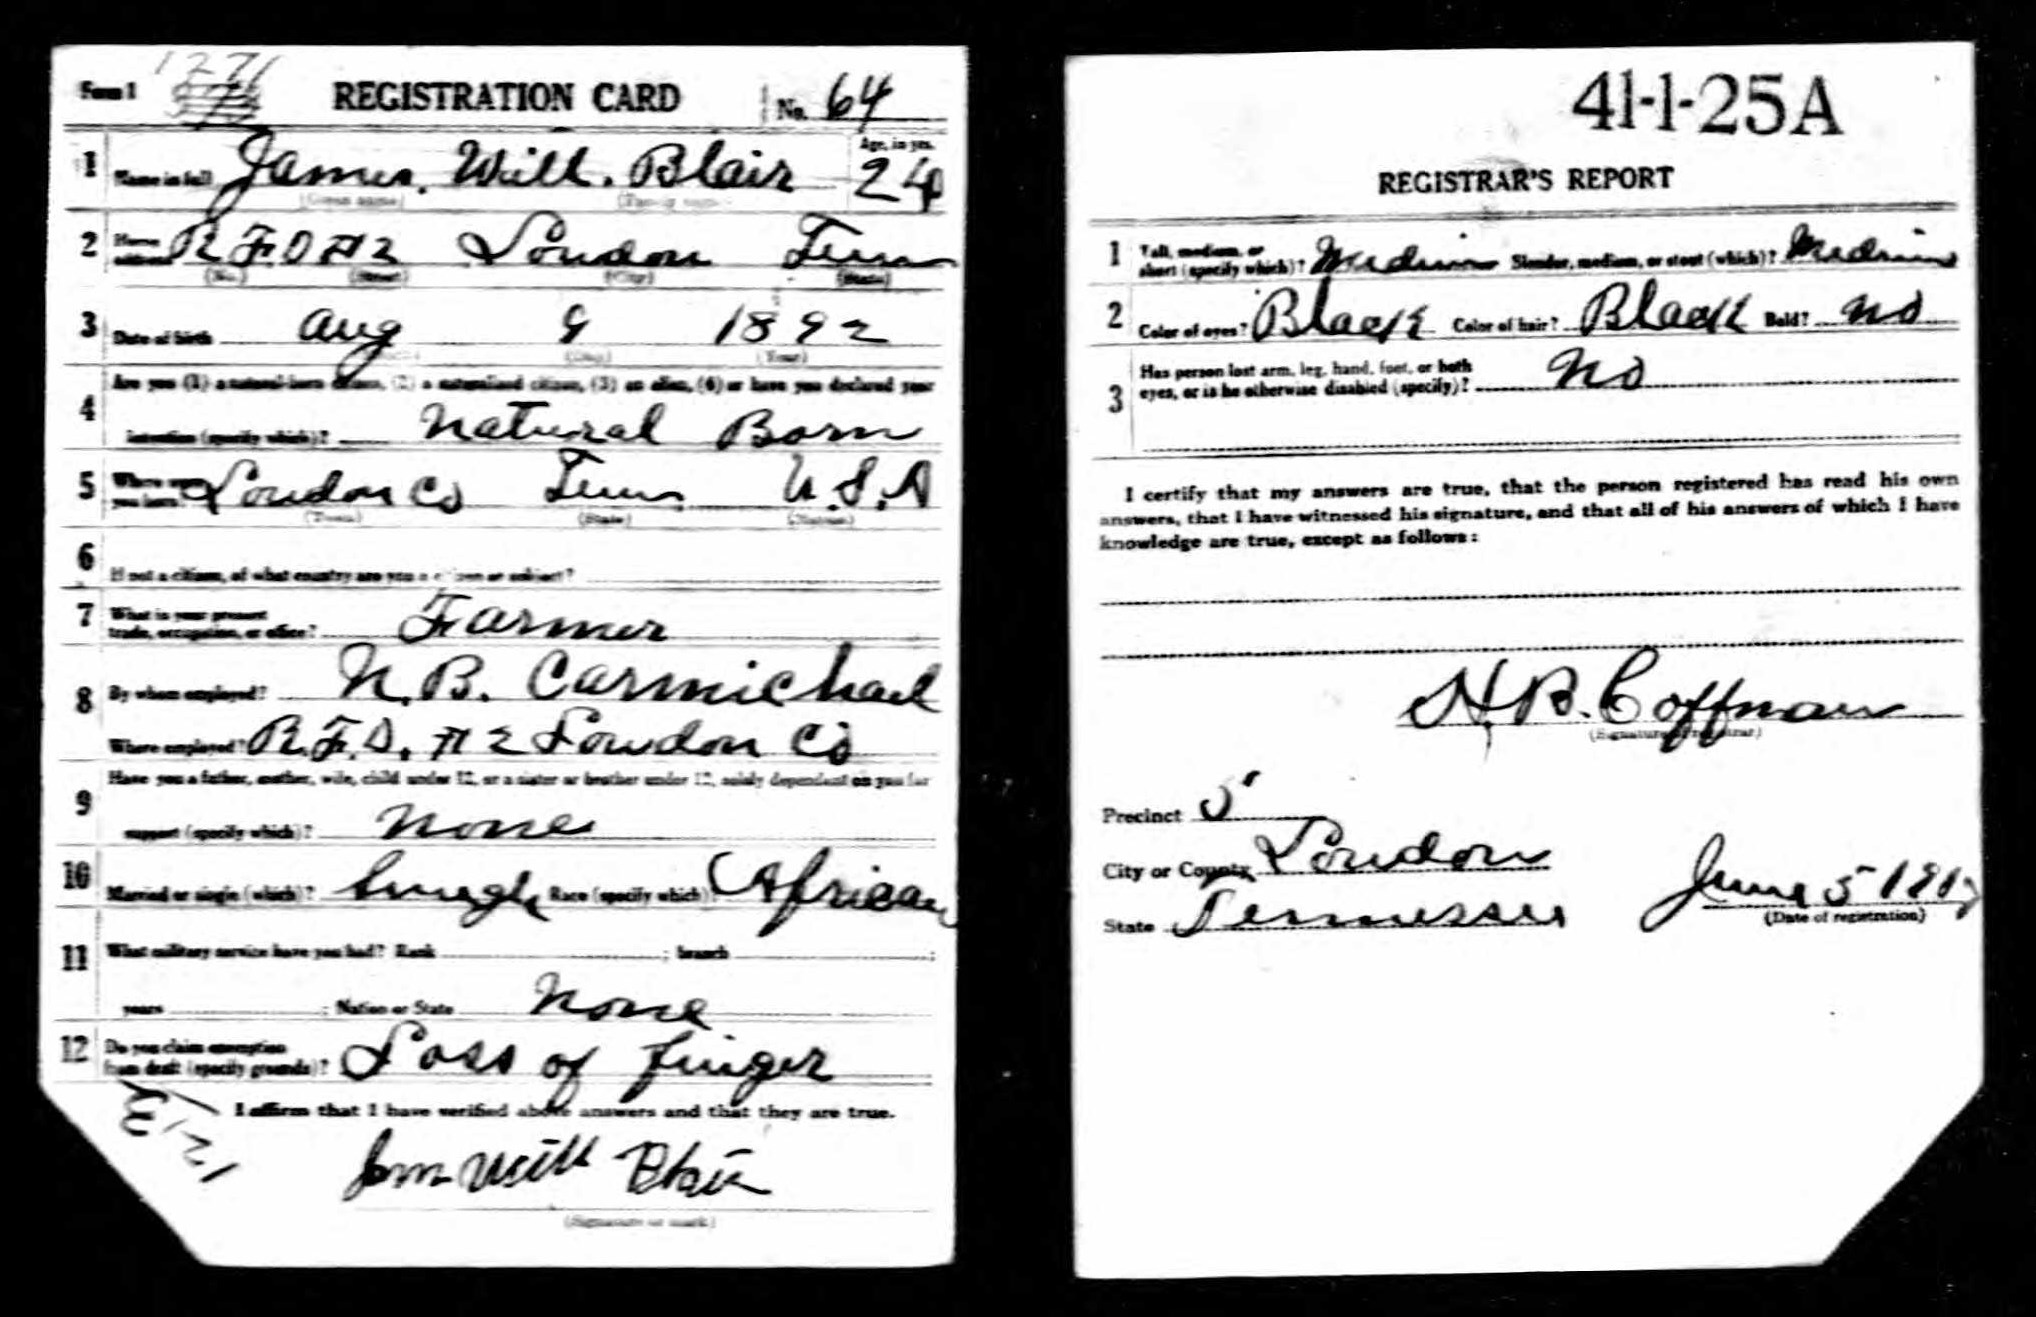 1271
Form 1 REGISTRATION CARD No. 64
1 Name in full James. Will. Blair Age, in yrs. 24
(Given name) (Family name)
2 Home address R F D # 2 Loudon Tenn
(No.) (Street) (City) (State)
3 Date of birth Aug 9 1892
(Day) (Year)
4 Are you (1) a natural-born citizen, (2) a naturalized citizen, (3) an alien, (4) or have you declared your
intention (specify which)? Natural Born
5 Where were you born? Loudon Co Tenn. U.S.A
(Town) (State) (Nation)
6 If not a citizen, of what country are you a citizen or subject?
7 What is your present trade, occupation, or office? Farmer
8 By whom employed? N. B. Carmichael
Where employed? R. F. D. # 2 Loudon Co
9 Have you a father, mother, wife, child under 12, or a sister or brother under 12, solely dependent on you for
support (specify which)? None
10 Married or single (which)? Single Race (specify which)? African
11 What military service have you had? Rank ; branch ;
years ; Nation or State None
12 Do you claim exemption from draft (specify grounds)? Loss of finger
I affirm that I have verified above answers and that they are true.
Jam Will Blair
(Signature or mark)
41-1-25A
REGISTRAR'S REPORT
1 Tall, medium, or short (specify which)? Medium Slender, medium, or stout (which)? Medium
2 Color of eyes? Black Color of hair? Black Bald? No
3 Has person lost arm, leg, hand, foot, or both eyes, or is he otherwise disabled (specify)? No
I certify that my answers are true, that the person registered has read his own
answers, that I have witnessed his signature, and that all of his answers of which I have
knowledge are true, except as follows:
H. B. Coffman
(Signature of registrar)
Precinct 5
City or County Loudon
State Tennessee June 5 1917
(Date of registration)